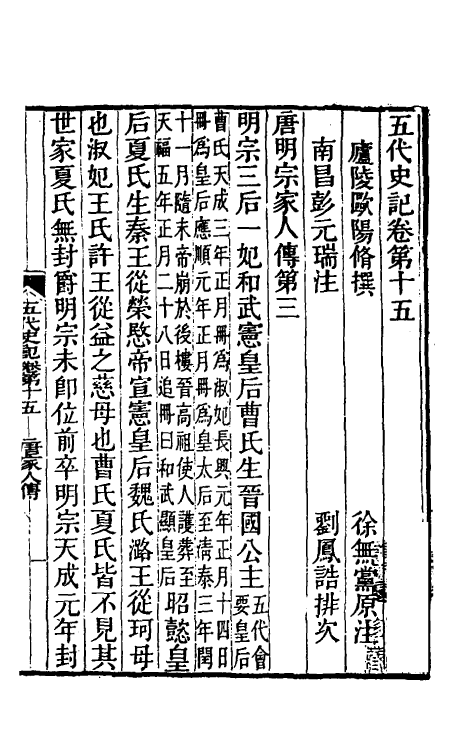 五代史記卷第十五
廬陵歐陽脩撰　徐無黨原注
南昌彭元瑞注　劉鳳誥排次
唐明宗家人傳第三
明宗三后一妃和武憲皇后曹氏生晉國公主五代會要皇后
曹氏天成三年正月冊為淑妃長興元年正月十四日
冊為皇后應順元年正月冊為皇太后至清泰三年閏
十一月隨末帝崩於後樓晉高祖使人護葬至
天福五年正月二十八日追冊曰和武顯皇后昭懿皇
后夏氏生秦王從榮愍帝宣憲皇后魏氏潞王從珂母
也淑妃王氏許王從益之慈母也曹氏夏氏皆不見其
世家夏氏無封爵明宗未卽位前卒明宗天成元年封
五代史記卷第十五　唐家人傳　一